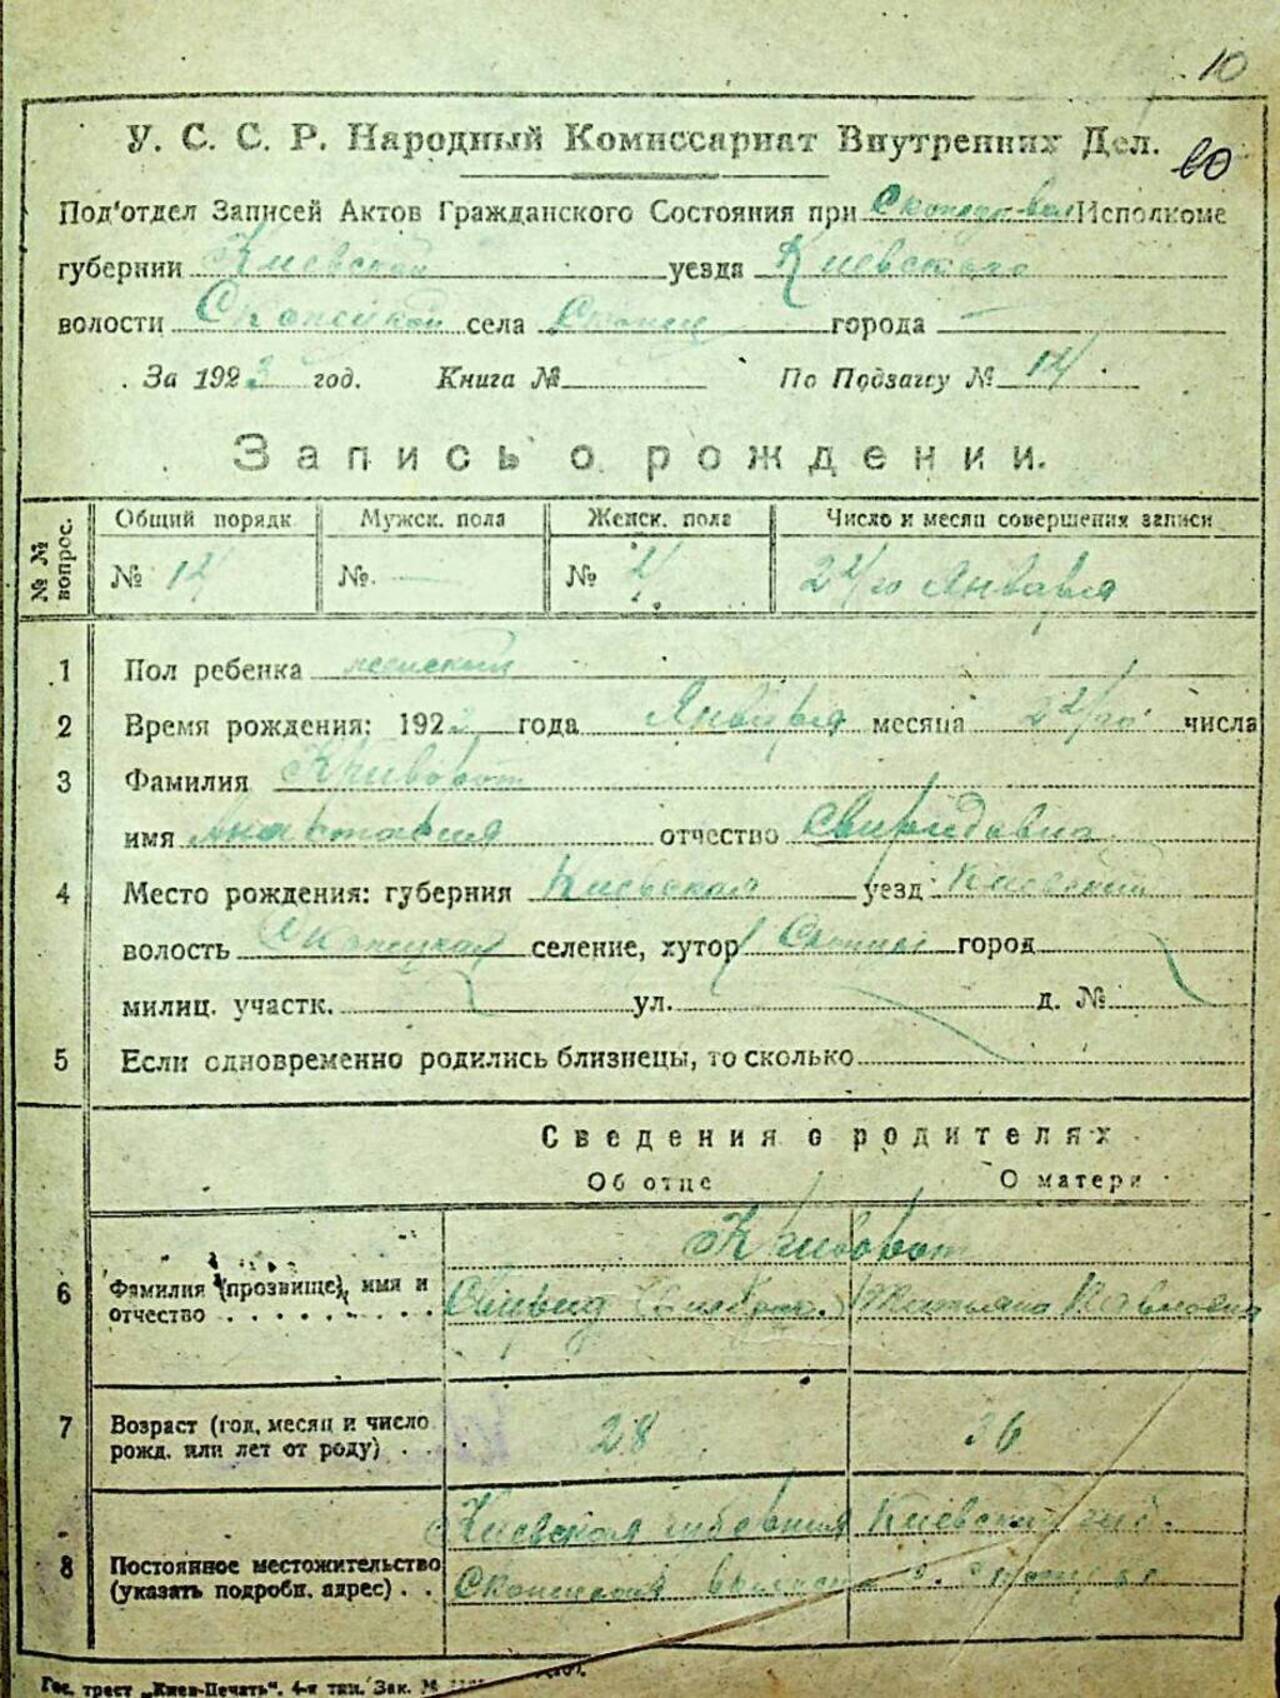 10
У. С. С. Р. Народный Комиссариат Внутренних Дел.
Под'отдел Записей Актов Гражданского Состояния при Исполкоме
губернии Киевской уезда Киевского
волости Скопецкой села города —
За 1923 год. Книга № По Подзагсу № 14
Запись о рождении.
№ № вопрос. Общий порядк Мужск. пола Женск. пола Число и месяц совершения записи
№ 14 №. — № 4 24/го Января
1 Пол ребенка женский
2 Время рождения: 1923 года Января месяца числа
3 Фамилия Криворот
имя Анастасия отчество Свиридовна
4 Место рождения: губерния Киевская уезд Киевский
волость Скопецкая селение, хутор город
милиц. участк. ул. д. №
5 Если одновременно родились близнецы, то сколько
Сведения о родителях
Об отце О матери
Криворот
6 Фамилия (прозвище), имя и отчество Свирид Татьяна Павловна
7 Возраст (год, месяц и число рожд. или лет от роду) 28 36
Киевская губерния Киевский
8 Постоянное местожительство (указать подробн. адрес) Скопецкая волость с.
Гос. трест „Киев-Печать“. 4-я тип. Зак. №